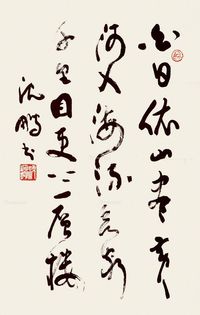 白日依山尽黄
河入海流欲穷
千里目更上一层楼
沈鹏书